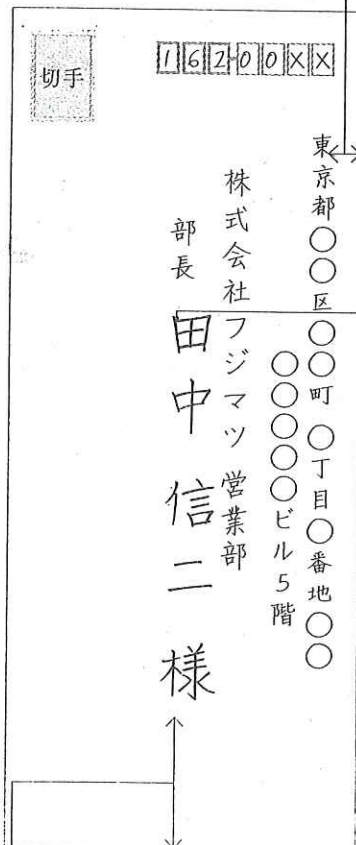 切手
162-00XX
東京都○○区○○町 ○丁目○番地○○
○○○○○ビル5階
株式会社フジマツ 営業部
部長 田中 信二 様